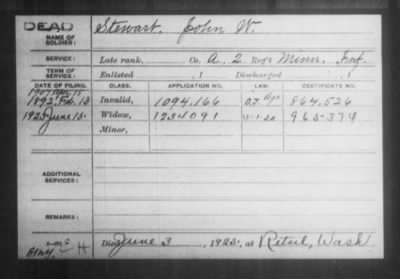 DEAD
NAME OF SOLDIER: Stewart, John W.
SERVICE: Late rank, Co. A, 2 Reg't Minn. Inf
TERM OF SERVICE: Enlisted , 1 Discharged , 1
DATE OF FILING. CLASS. APPLICATION NO. LAW. CERTIFICATE NO.
1892 Feb. 13 Invalid, 1094.166 864.526
1925 June 15 Widow, 1234091 5-1-20 965-379
Minor,
ADDITIONAL SERVICES:
REMARKS:
Died June 3, 1925, at Retsil, Wash
H